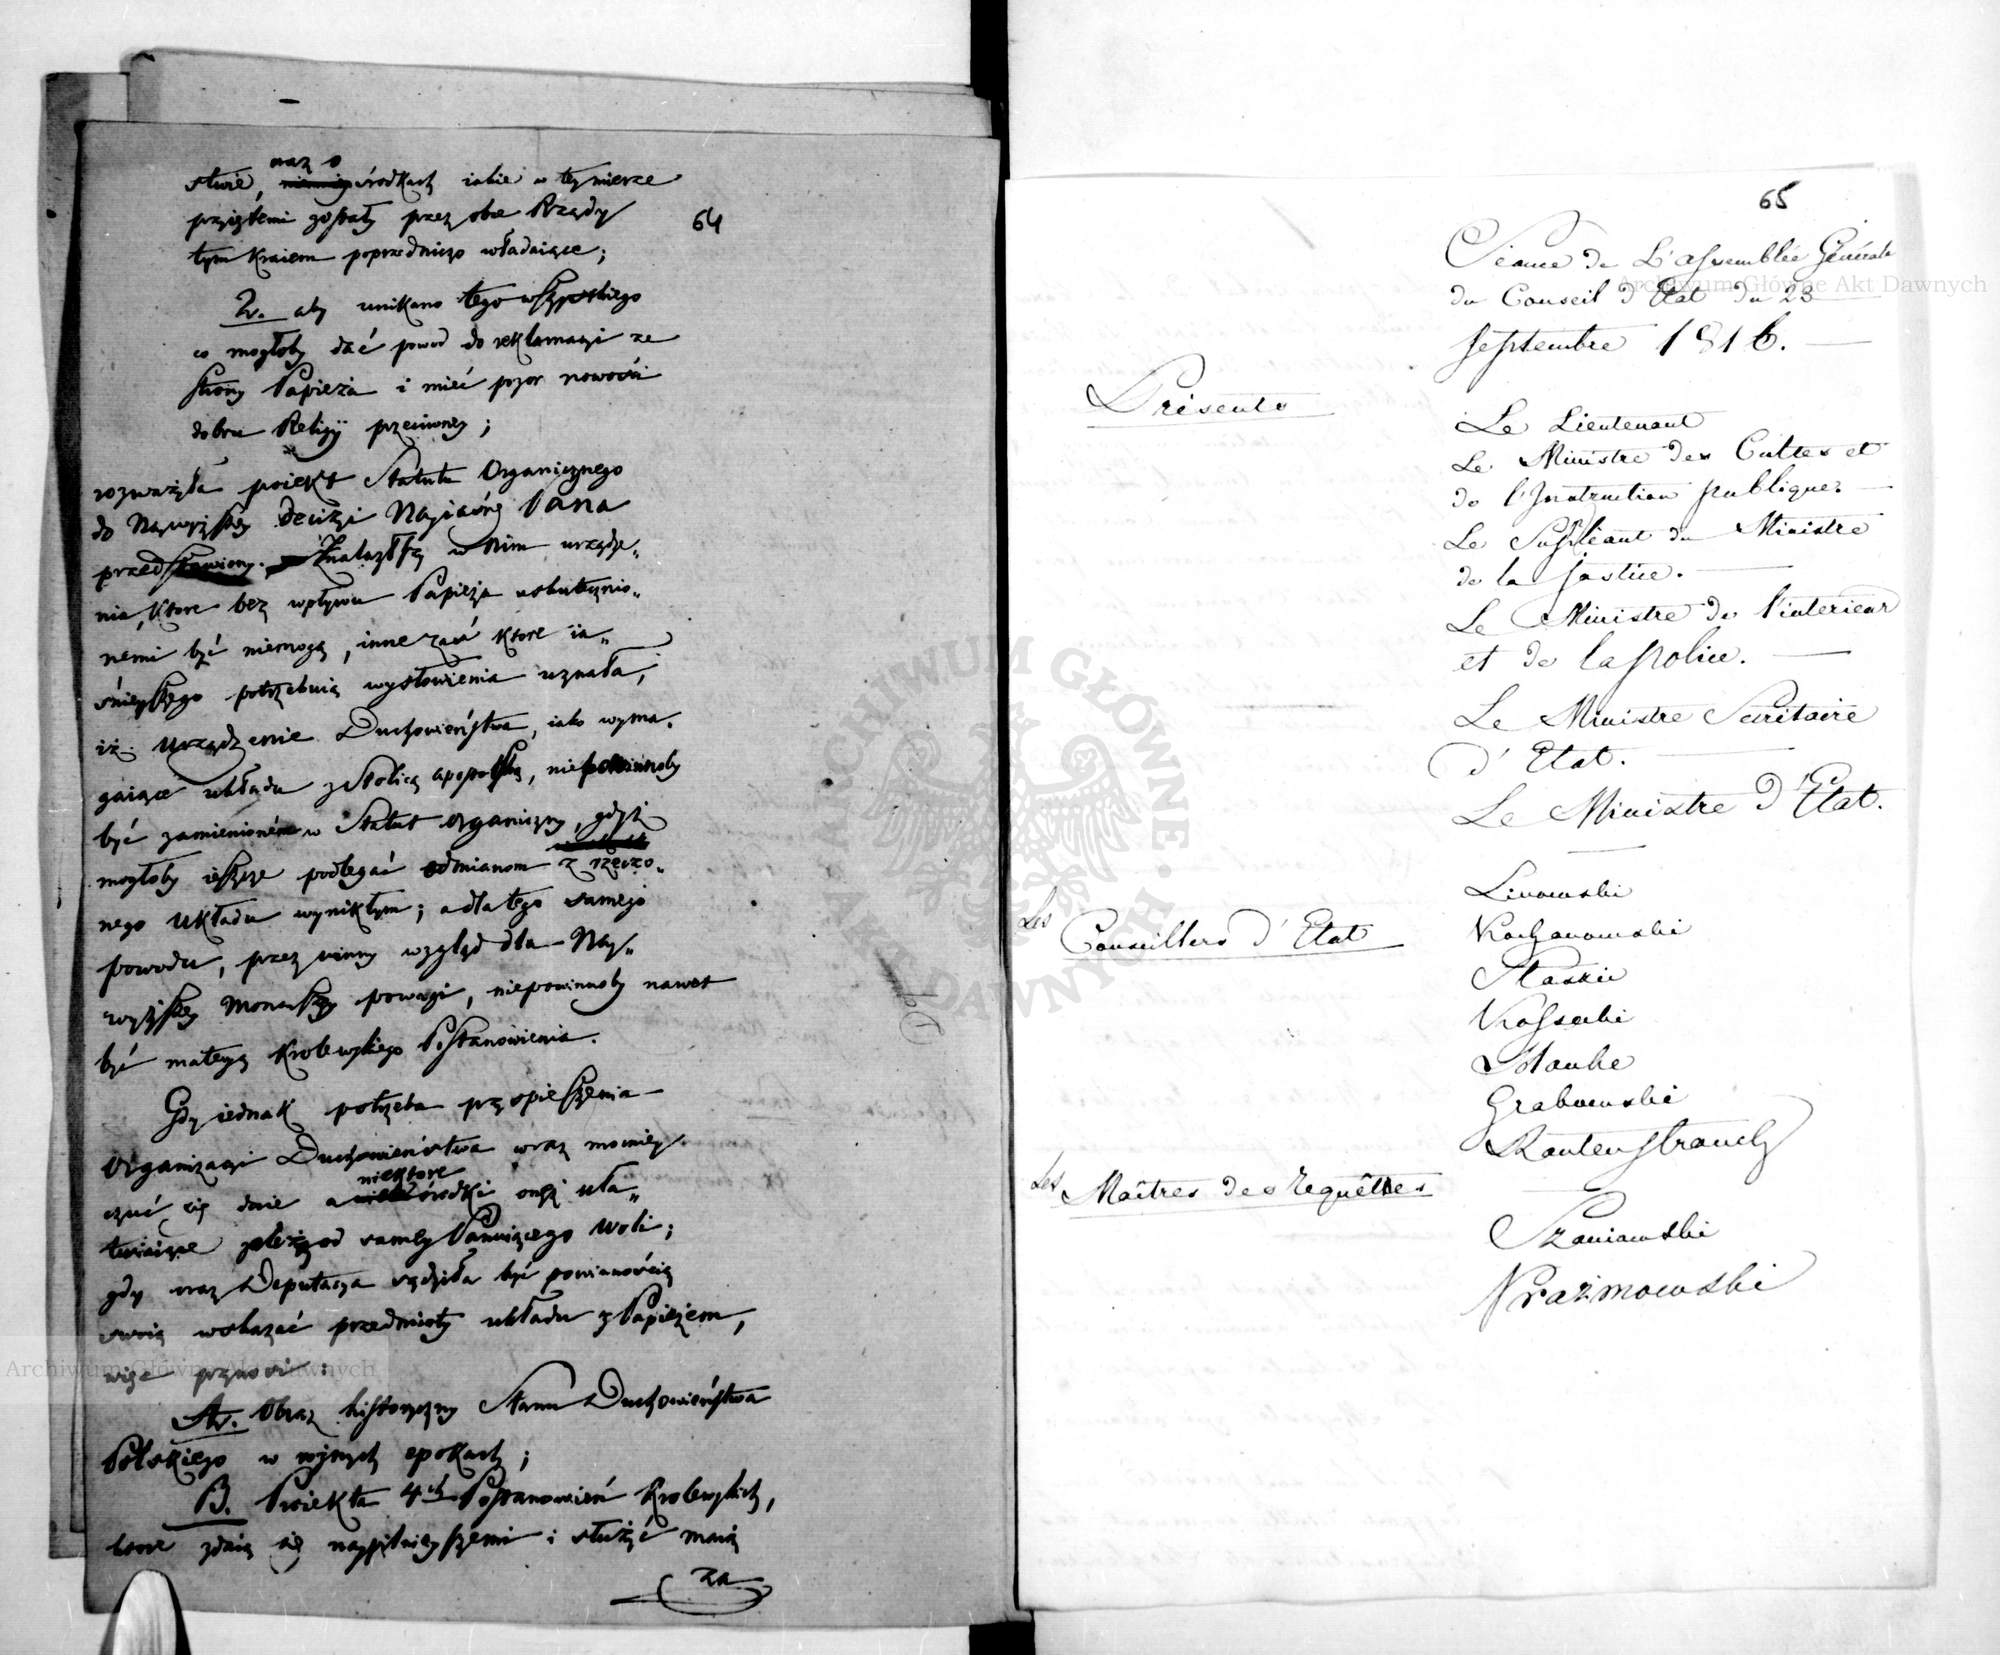 oraz o
stwie, środkach iakie w tey mierze
przyiętemi zostały przez obce Rządy
64
tym Kraiem poprzedniczo władaiące;
2r. aby unikano tego wszystkiego
co mogłoby dać powod do reklamacyi ze
strony Papieża i mieć pozor nowości
dobru Religij przeciwney;
rozważyła proiekt Statutu Organicznego
do Naywyższey decizyi Nayiaśnie Pana
przedstawiony. Znalazłszy w nim urządze„
nia, ktore bez wpływu Papieża uskutecznio„
nemi być niemogą, inne zaś ktore ia„
śnieyszego potrzebuią wysłowienia uznała,
iż Urządzenie Duchowieństwa, iako wyma„
gaiące układu z Stolicą apostolską, niepowinnoby
być zamienionem w Statut organiczny, gdyż
mogłoby ieszcze podlegać odmianom z rzeczo„
nego Układu wynikłym; a dla tego samego
powodu, przez winny wzgląd dla Nay„
wyższey Monarszey powagi, niepowinnoby nawet
być materyą Krolewskiego Postanowienia.
Gdy iednak potrzeba przyspieszenia
Organizacyi Duchowieństwa coraz mocniey
niektore
czuć się daie a środki oney uła„
twiaiące zależą od samey Panuiącego Woli;
gdy oraz Deputacya sądziła być powinnością
swoią wskazać przedmioty układu z Papieżem,
więc przynosi:
A. Obraz historyczny Stanu Duchowieństwa
Polskiego w rożnych epokach;
B. Proiekta 4ch Postanowień Krolewskich,
ktore zdaią się naypilnieyszemi i służyć maią
za
65
Séance de L'assemblée Générale
du Conseil d'Etat du 23
Septembre 1816.
Présents
Le Lieutenant
Le Ministre des Cultes et
de l'Instruction publique.
Le Supléant du Ministre
de la Justice.
Le Ministre de l'interieur
et de la police.
Le Ministre Secrétaire
d'Etat.
Le Ministre d'Etat.
Les Conseillers d'Etat
Linowski
Kochanowski
Staszic
Kossecki
Woyde
Grabowski
Rautenstrauch
Les Maîtres des requêttes
Szaniawski
Prażmowski
Archiwum Główne Akt Dawnych
Archiwum Główne Akt Dawnych
ARCHIWUM GŁÓWNE AKT DAWNYCH